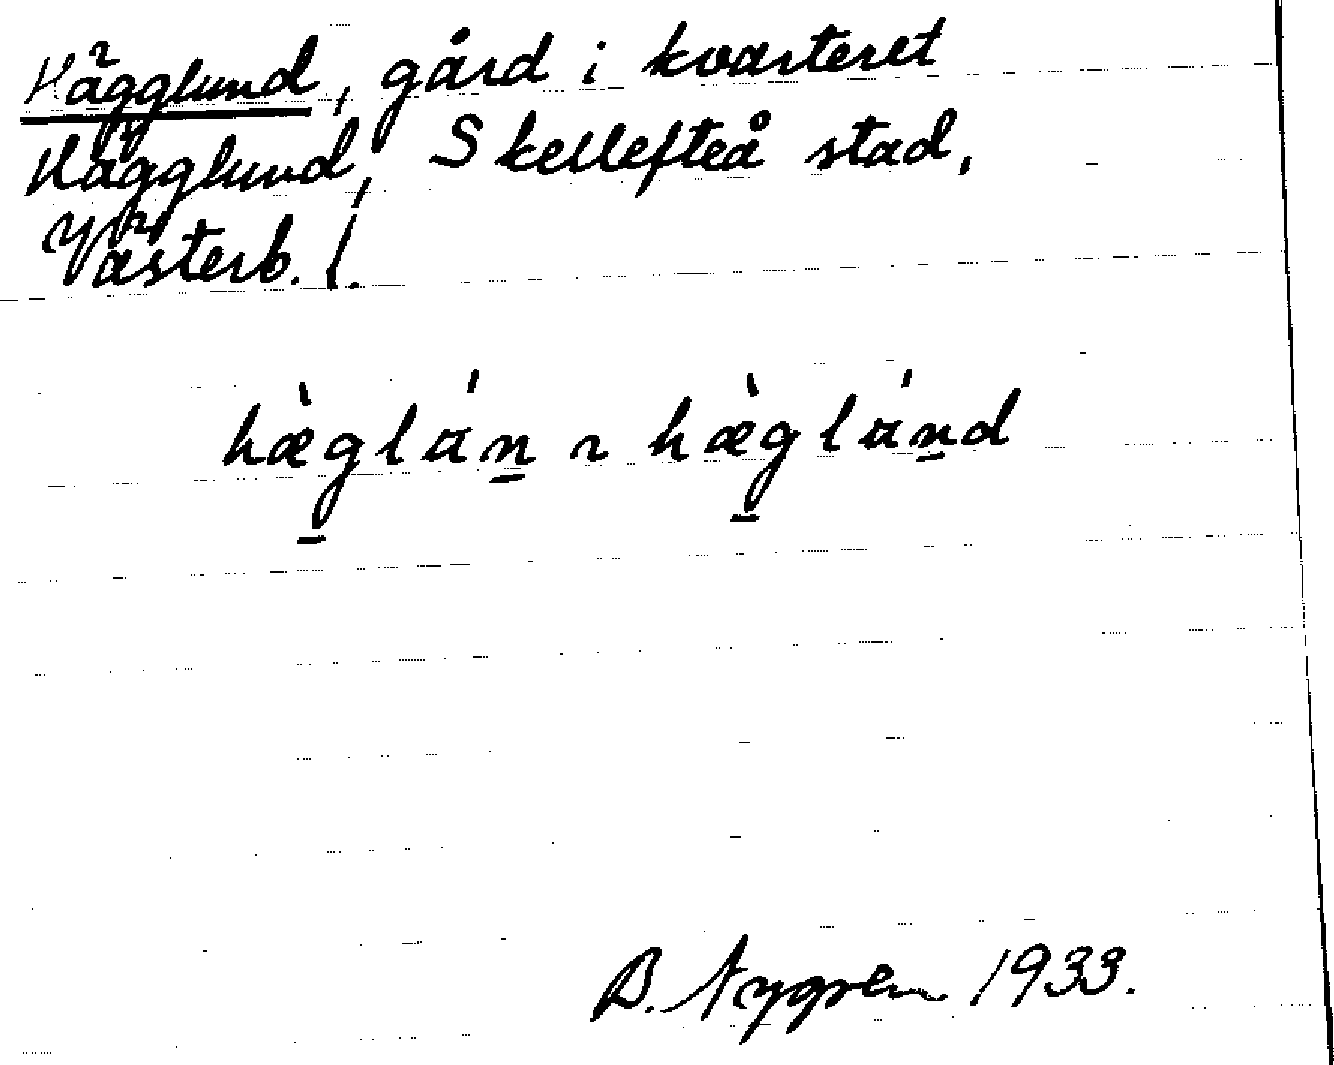 Hägglund, gård i kvarteret
Hägglund, Skellefteå stad,
Västerb. l.
hæ̀g̱lάṉ ~ hæ̀g̱lάṉd
B. Nygren 1933.